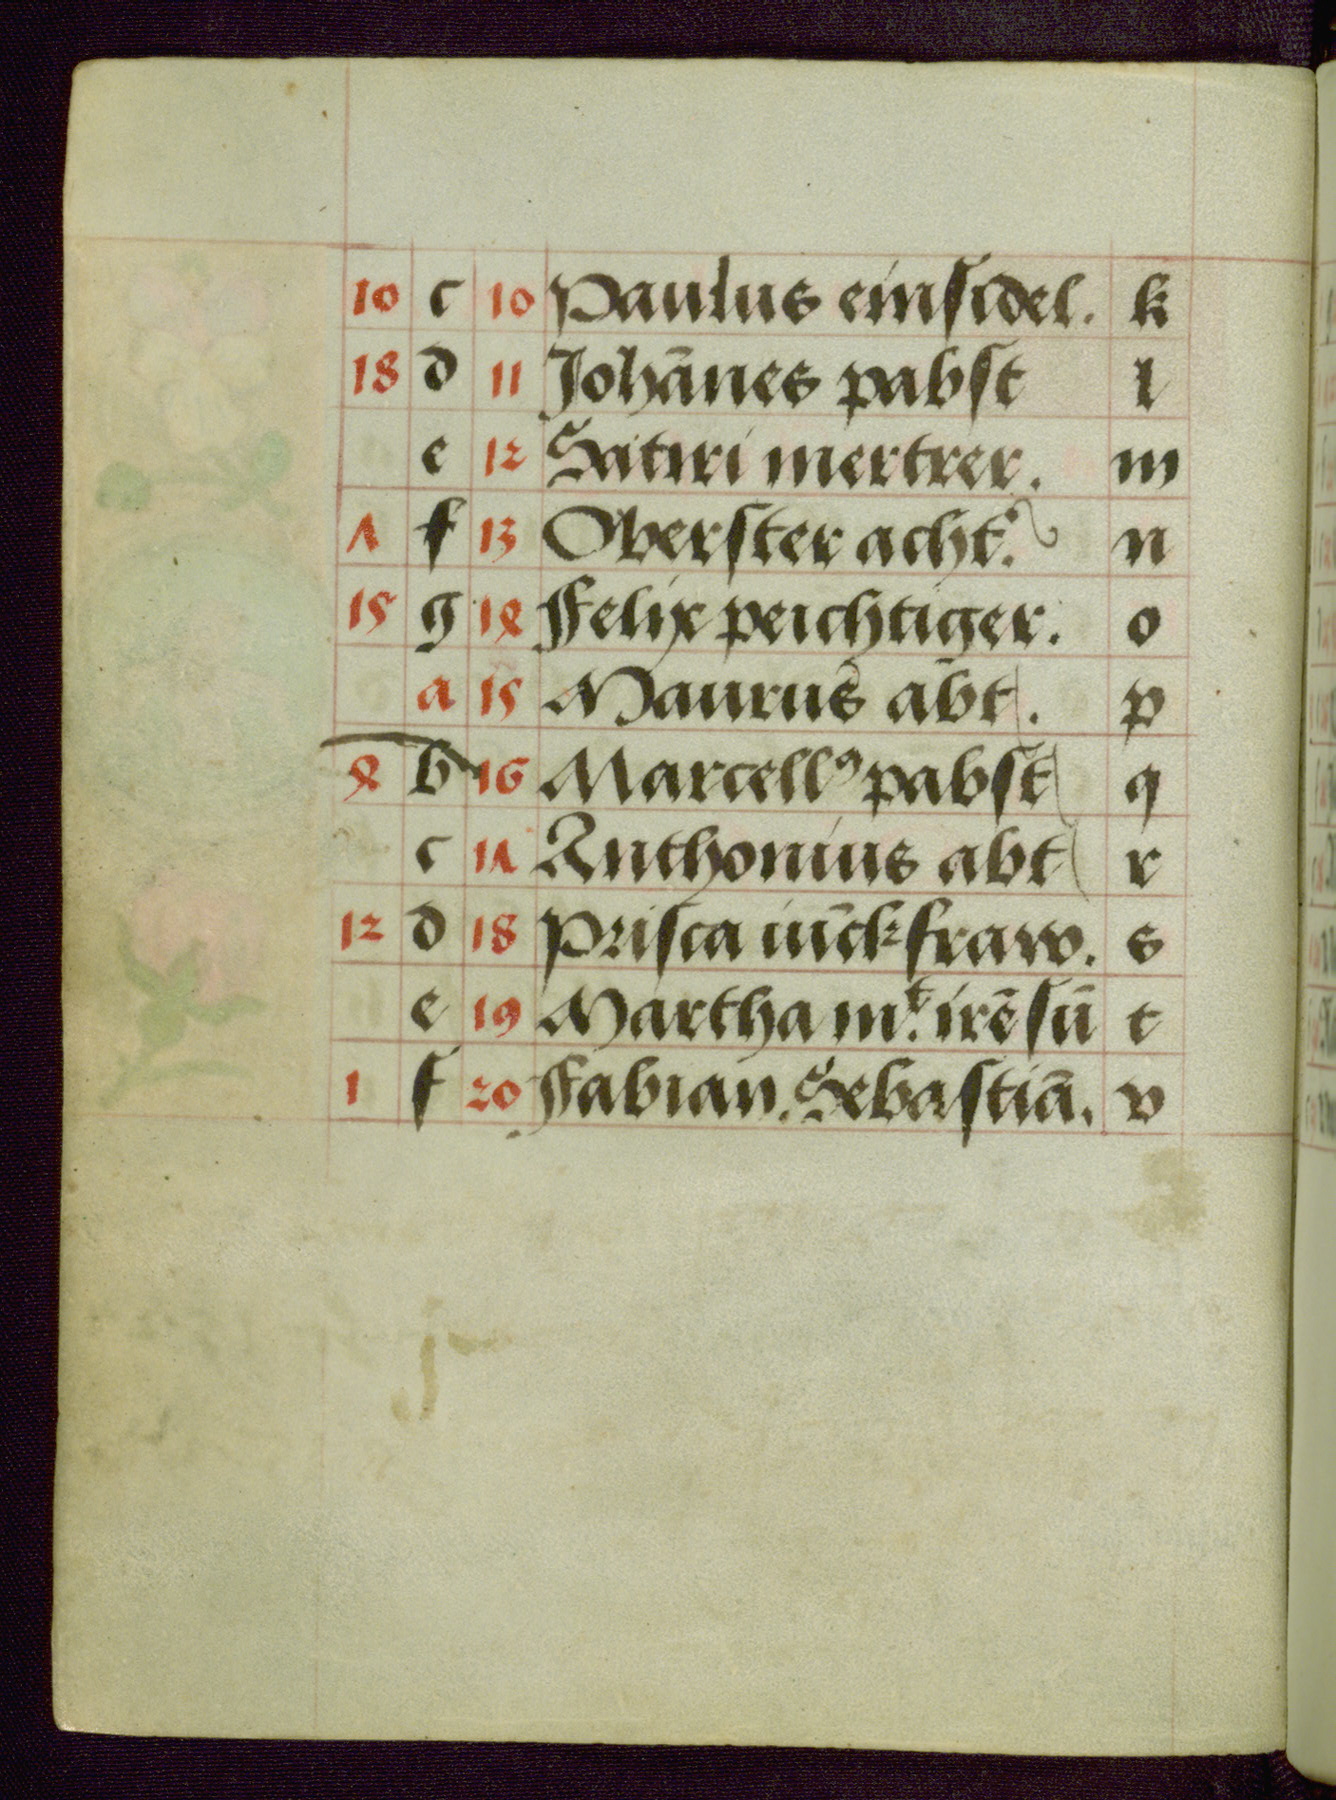 10 c 10 Paulus einſidel. k
18 d 11 Johānes pabſt l
e 12 Satiri mertrer. m
7 f 13 Oberſter acht. n
15 g 14 Felix peichtiger. o
a 15 Maurus abt. p
4 b 16 Marcellꝰ pabſt q
c 17 Anthonius abt r
12 d 18 Priſca iūckfraw. s
e 19 Martha mt. irē ſū t
1 f 20 Fabian. Sebaſtiā. v